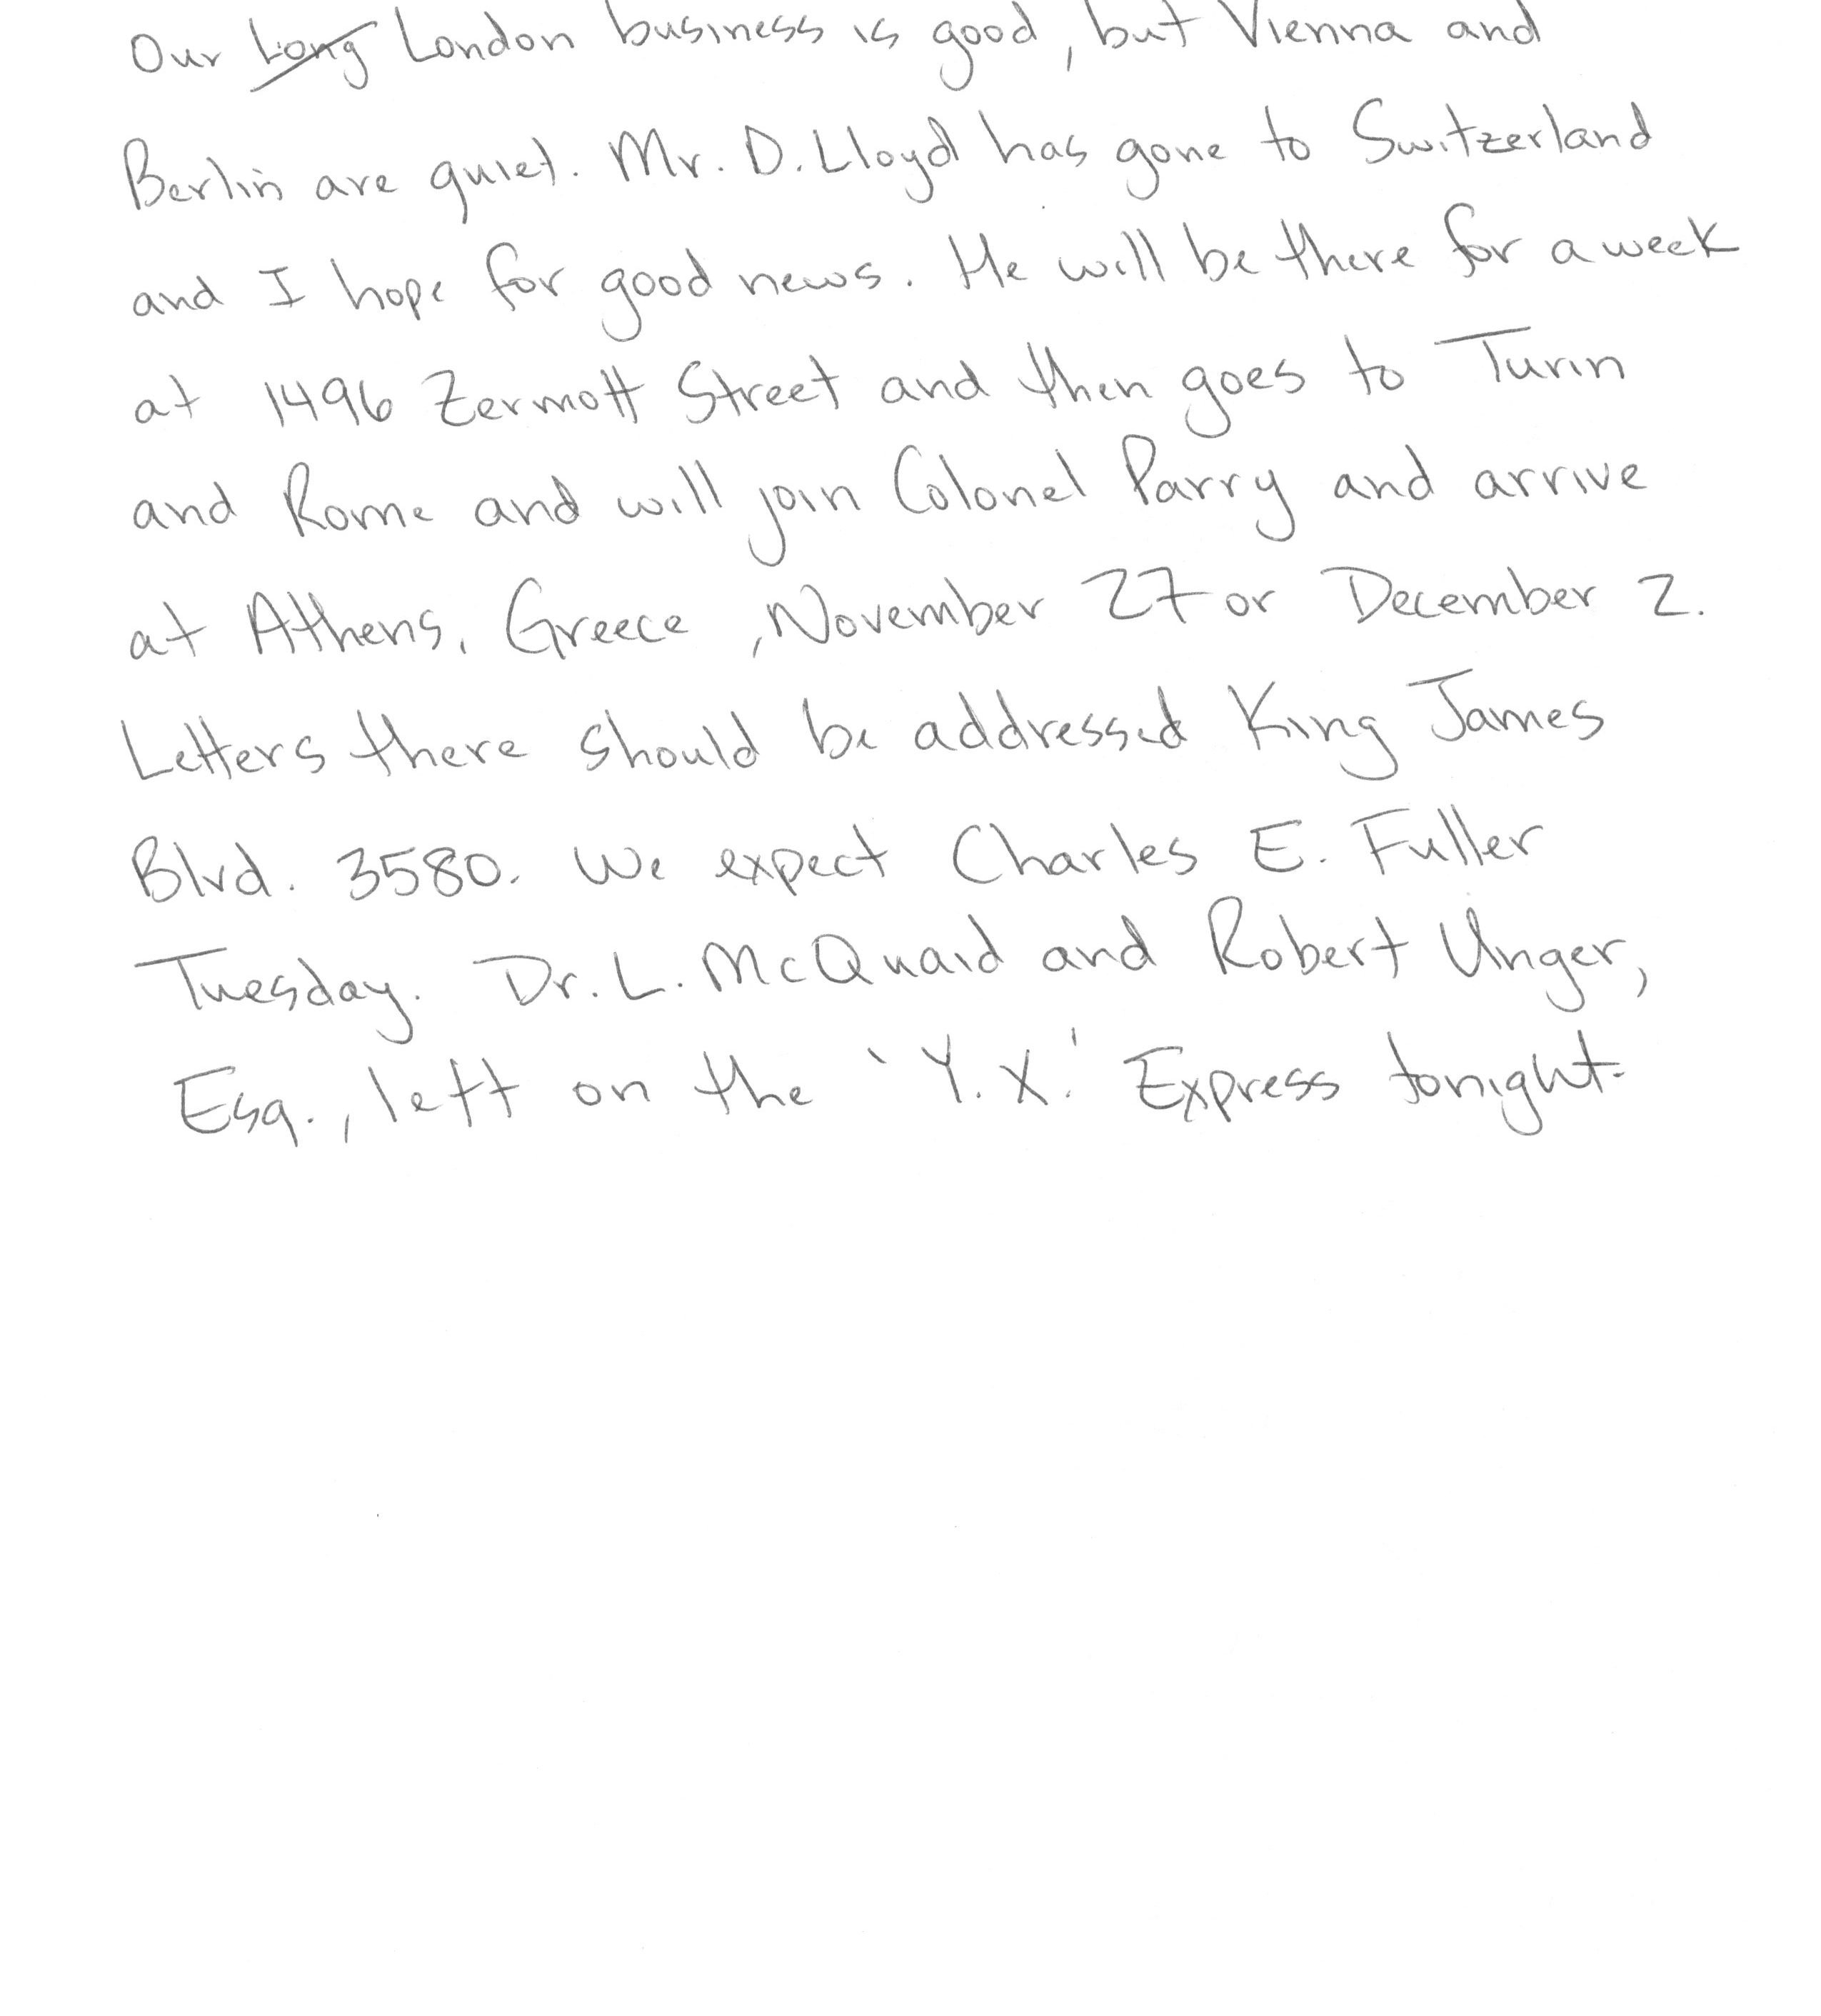 Our Long London business is good, but Vienna and
Berlin are quiet. Mr. D. Lloyd has gone to Switzerland
and I hope for good news. He will be there for a week
at 1496 Zermott Street and then goes to Turin
and Rome and will join Colonel Parry and arrive
at Athens, Greece, November 27 or December 2.
Letters there should be addressed King James
Blvd. 3580. We expect Charles E. Fuller
Tuesday. Dr. L. McQuaid and Robert Unger,
Esq., left on the 'Y.X.' Express tonight.